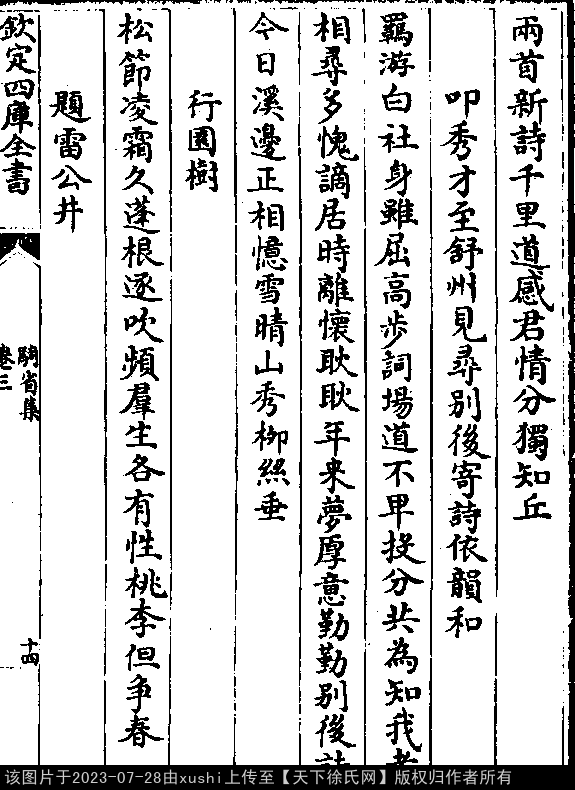 兩首新詩千里道感君情分獨知丘
印秀才至舒州見尋別後寄詩依韻和
羈游白社身雖屈高步詞場道不卑投分共為知我者
相尋多愧謫居時離懷耿耿年来夢厚意勤勤別後詩
今日溪邊正相憶雪晴山秀栁絲垂
行園樹
松節凌霜久蓬根逐吹頻羣生各有性桃李但争春
題雷公井
欽定四庫全書
騎省集
卷三
十四
该图片于2023-07-28由xushi上传至【天下徐氏网】版权归作者所有